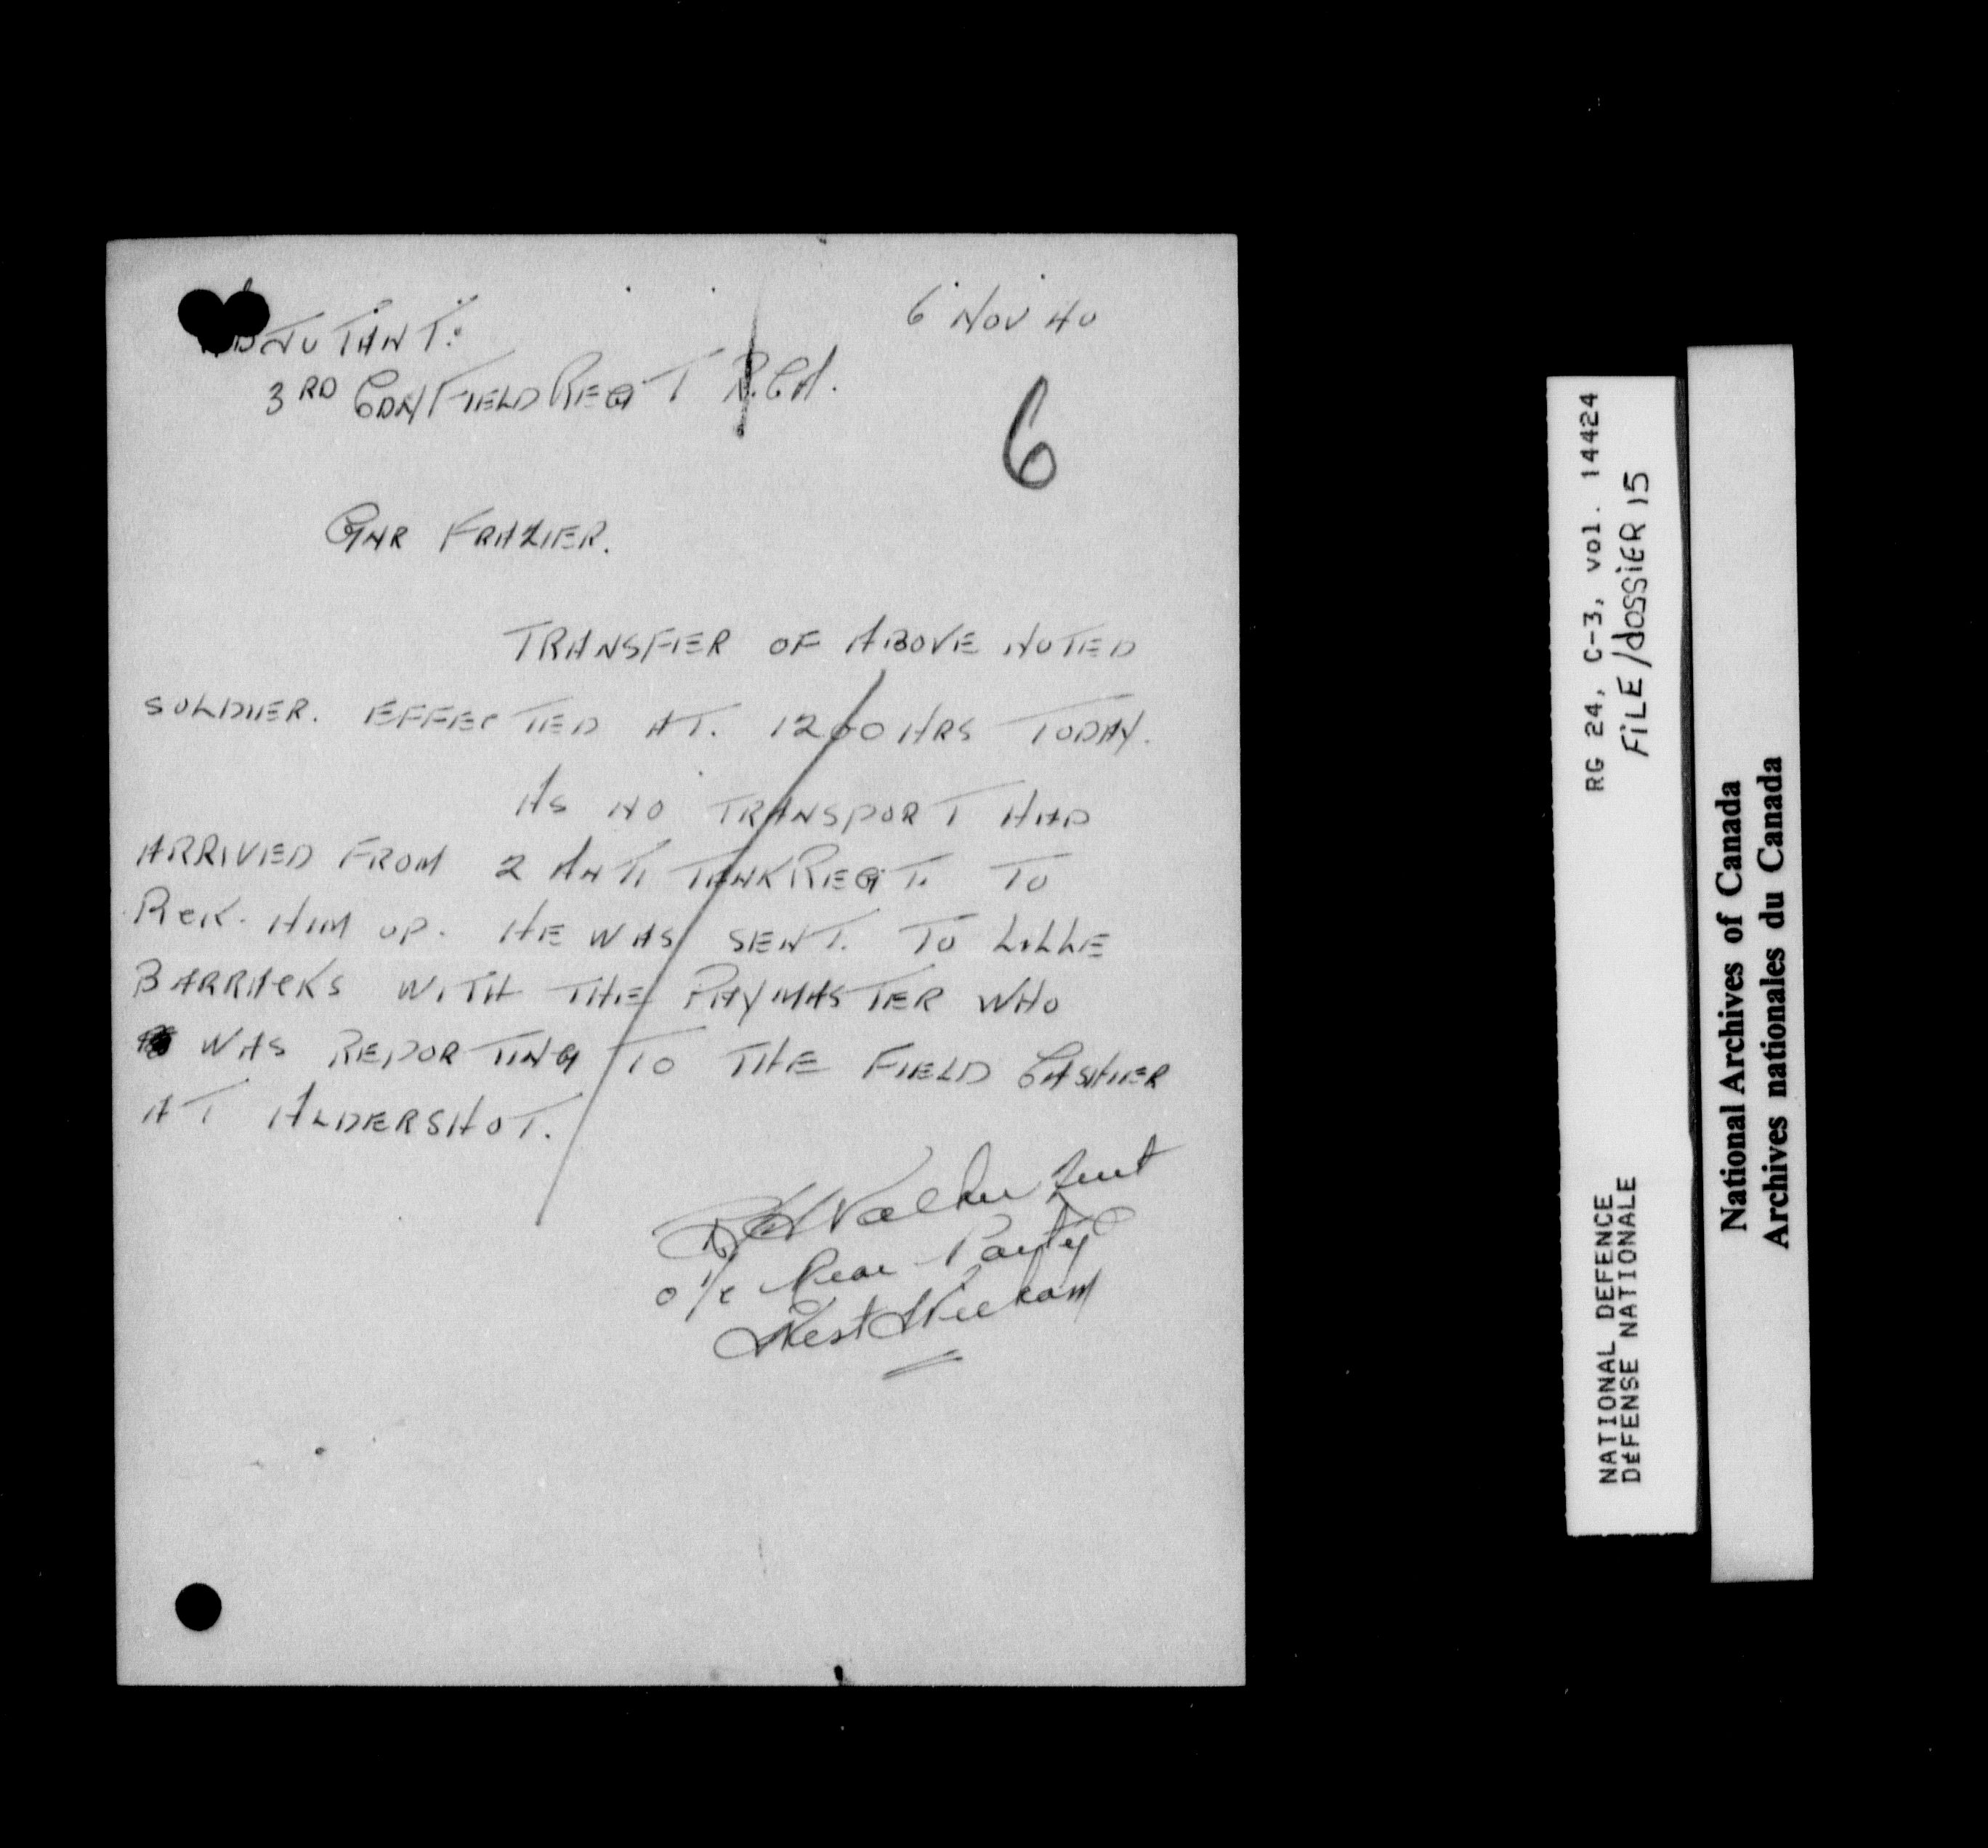 6 NOV 40
ADJUTANT:
3RD CDN FIELD REGT R.C.A.
6
GNR FRAZIER.
TRANSFER OF ABOVE NOTED
SOLDIER. EFFECTED AT. 1200 HRS TODAY.
AS NO TRANSPORT HAD
ARRIVED FROM 2 ANTI TANK REGT. TO
PICK HIM UP. HE WAS SENT. TO LILLE
BARRACKS WITH THE PAYMASTER WHO
WAS REPORTING TO THE FIELD CASHIER
AT ALDERSHOT.
Walker Lieut
o i/c Rear Party
West Wickham
RG 24, C-3, vol. 14424
FILE/dossiER 15
NATIONAL DEFENCE
DÉFENSE NATIONALE
National Archives of Canada
Archives nationales du Canada